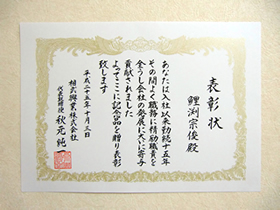 表彰状
鯉渕宗俊殿
あなたは入社以来勤続十五年
その間よく職務に精励職責を
全うし会社の発展に大いに寄与
貢献されました
よってここに記念品を贈り表彰
致します
平成二十五年十月三日
相武興業株式会社
代表取締役 秋元純一